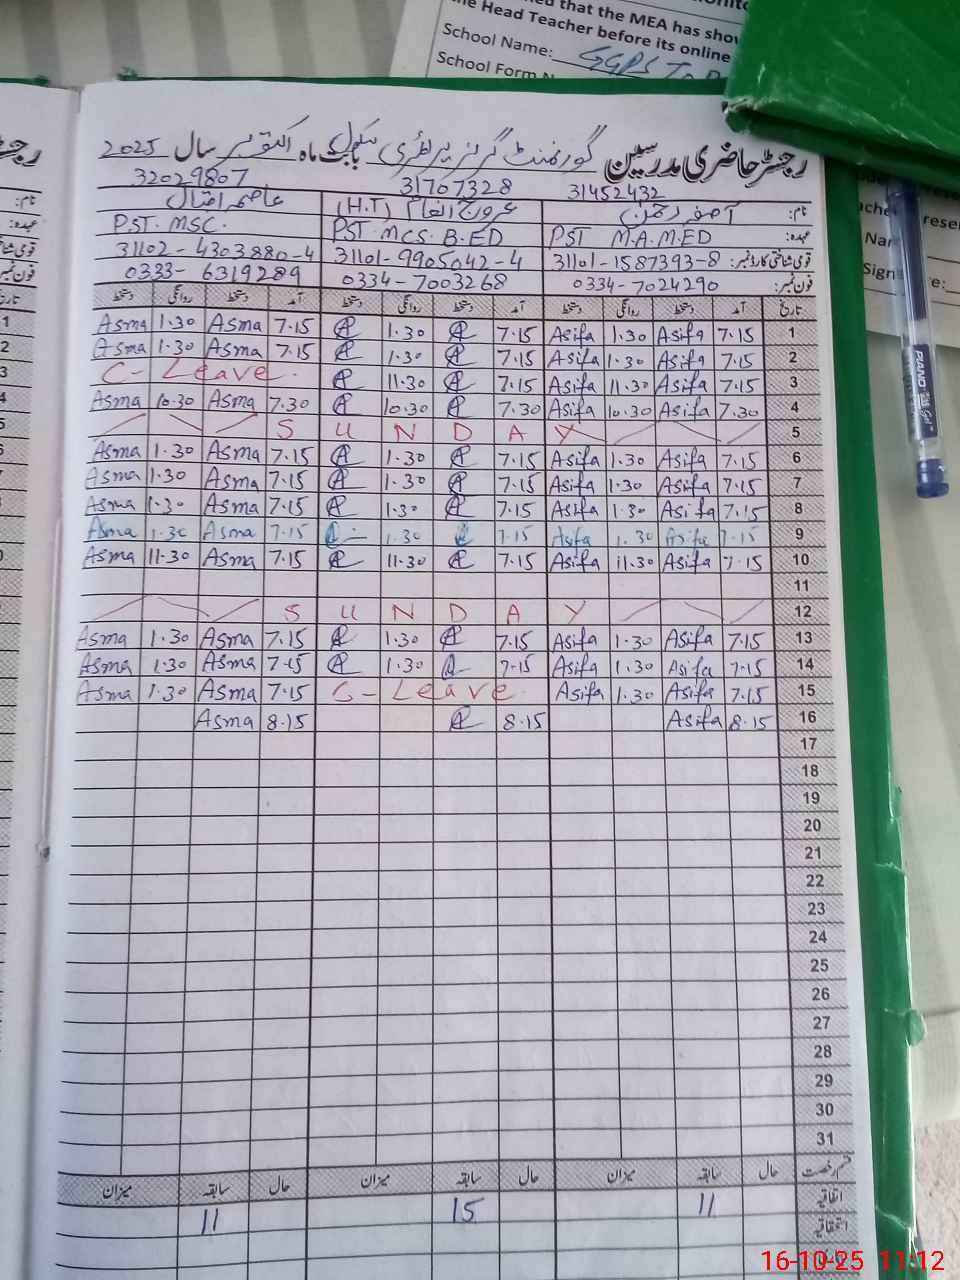 that the MEA has
the Head Teacher before its online
School Name: GGPS
School Form
رجسٹر حاضری مدرسین گورنمنٹ گرلز پرائمری سکول بابت ماہ اکتوبر سال 2025
31452432 31707328 32029807
نام: آصفہ رحمن عروج انعام (H.T) عاصمہ اقبال
عہدہ: PST M.A.M.ED PST.MCS.B.ED PST.MSC.
قومی شناختی کارڈ نمبر: 31101-1587393-8 31101-9905042-4 31102-4303880-4
فون نمبر: 0334-7024290 0334-7003268 0333-6319289
تاریخ آمد دستخط روانگی دستخط آمد دستخط روانگی دستخط آمد دستخط روانگی دستخط
Asma 1.30 Asma 7.15 1.30 7.15 Asifa 1.30 Asifa 7.15 1
Asma 1.30 Asma 7.15 1.30 7.15 Asifa 1.30 Asifa 7.15 2
C-Leave. 11.30 7.15 Asifa 11.30 Asifa 7.15 3
Asma 10.30 Asma 7.30 10.30 7.30 Asifa 10.30 Asifa 7.30 4
S U N D A Y 5
Asma 1.30 Asma 7.15 1.30 7.15 Asifa 1.30 Asifa 7.15 6
Asma 1.30 Asma 7.15 1.30 7.15 Asifa 1.30 Asifa 7.15 7
Asma 1.30 Asma 7.15 1.30 7.15 Asifa 1.30 Asifa 7.15 8
Asma 1.30 Asma 7.15 1.30 7.15 Asifa 1.30 Asifa 7.15 9
Asma 11.30 Asma 7.15 11.30 7.15 Asifa 11.30 Asifa 7.15 10
11
S U N D A Y 12
Asma 1.30 Asma 7.15 1.30 7.15 Asifa 1.30 Asifa 7.15 13
Asma 1.30 Asma 7.15 1.30 7.15 Asifa 1.30 Asifa 7.15 14
Asma 1.30 Asma 7.15 C-Leave. Asifa 1.30 Asifa 7.15 15
Asma 8.15 8.15 Asifa 8.15 16
17
18
19
20
21
22
23
24
25
26
27
28
29
30
31
قسم رخصت حال سابقہ میزان حال سابقہ میزان حال سابقہ میزان
اتفاقیہ 11 15 11
استحقاقیہ
PIANO
16-10-25 11:12